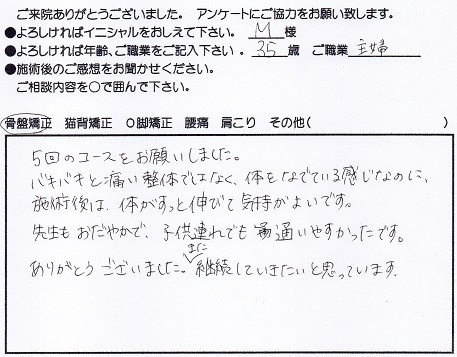 ご来院ありがとうございました。 アンケートにご協力をお願い致します。
●よろしければイニシャルをおしえて下さい。 M 様
●よろしければ年齢、ご職業をご記入下さい。 35 歳 ご職業 主婦
●施術後のご感想をお聞かせください。
ご相談内容を〇で囲んで下さい。
骨盤矯正 猫背矯正 O脚矯正 腰痛 肩こり その他( )
5回のコースをお願いしました。
バキバキと痛い整体ではなく、体をなでている感じなのに、
施術後は、体がすっと伸びて気持がよいです。
先生もおだやかで、子供連れでも通いやすかったです。
ありがとうございました。また継続していきたいと思っています。